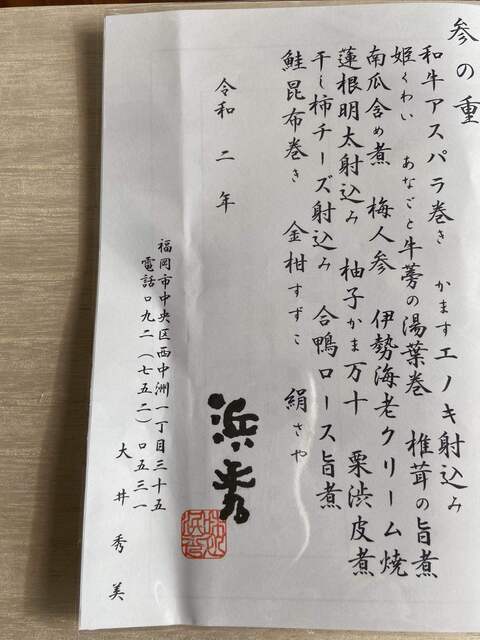 参の重
和牛アスパラ巻き　かますエノキ射込み
姫くわい　あなごと牛蒡の湯葉巻　椎茸の旨煮
南瓜含め煮　梅人参　伊勢海老クリーム焼
蓮根明太射込み　柚子かま万十　栗渋皮煮
干し柿チーズ射込み　合鴨ロース旨煮
鮭昆布巻き　金柑すずこ　絹さや
令和二年
浜秀
福岡市中央区西中洲一丁目三十五
電話〇九二（七五二）〇五三一
大井秀美